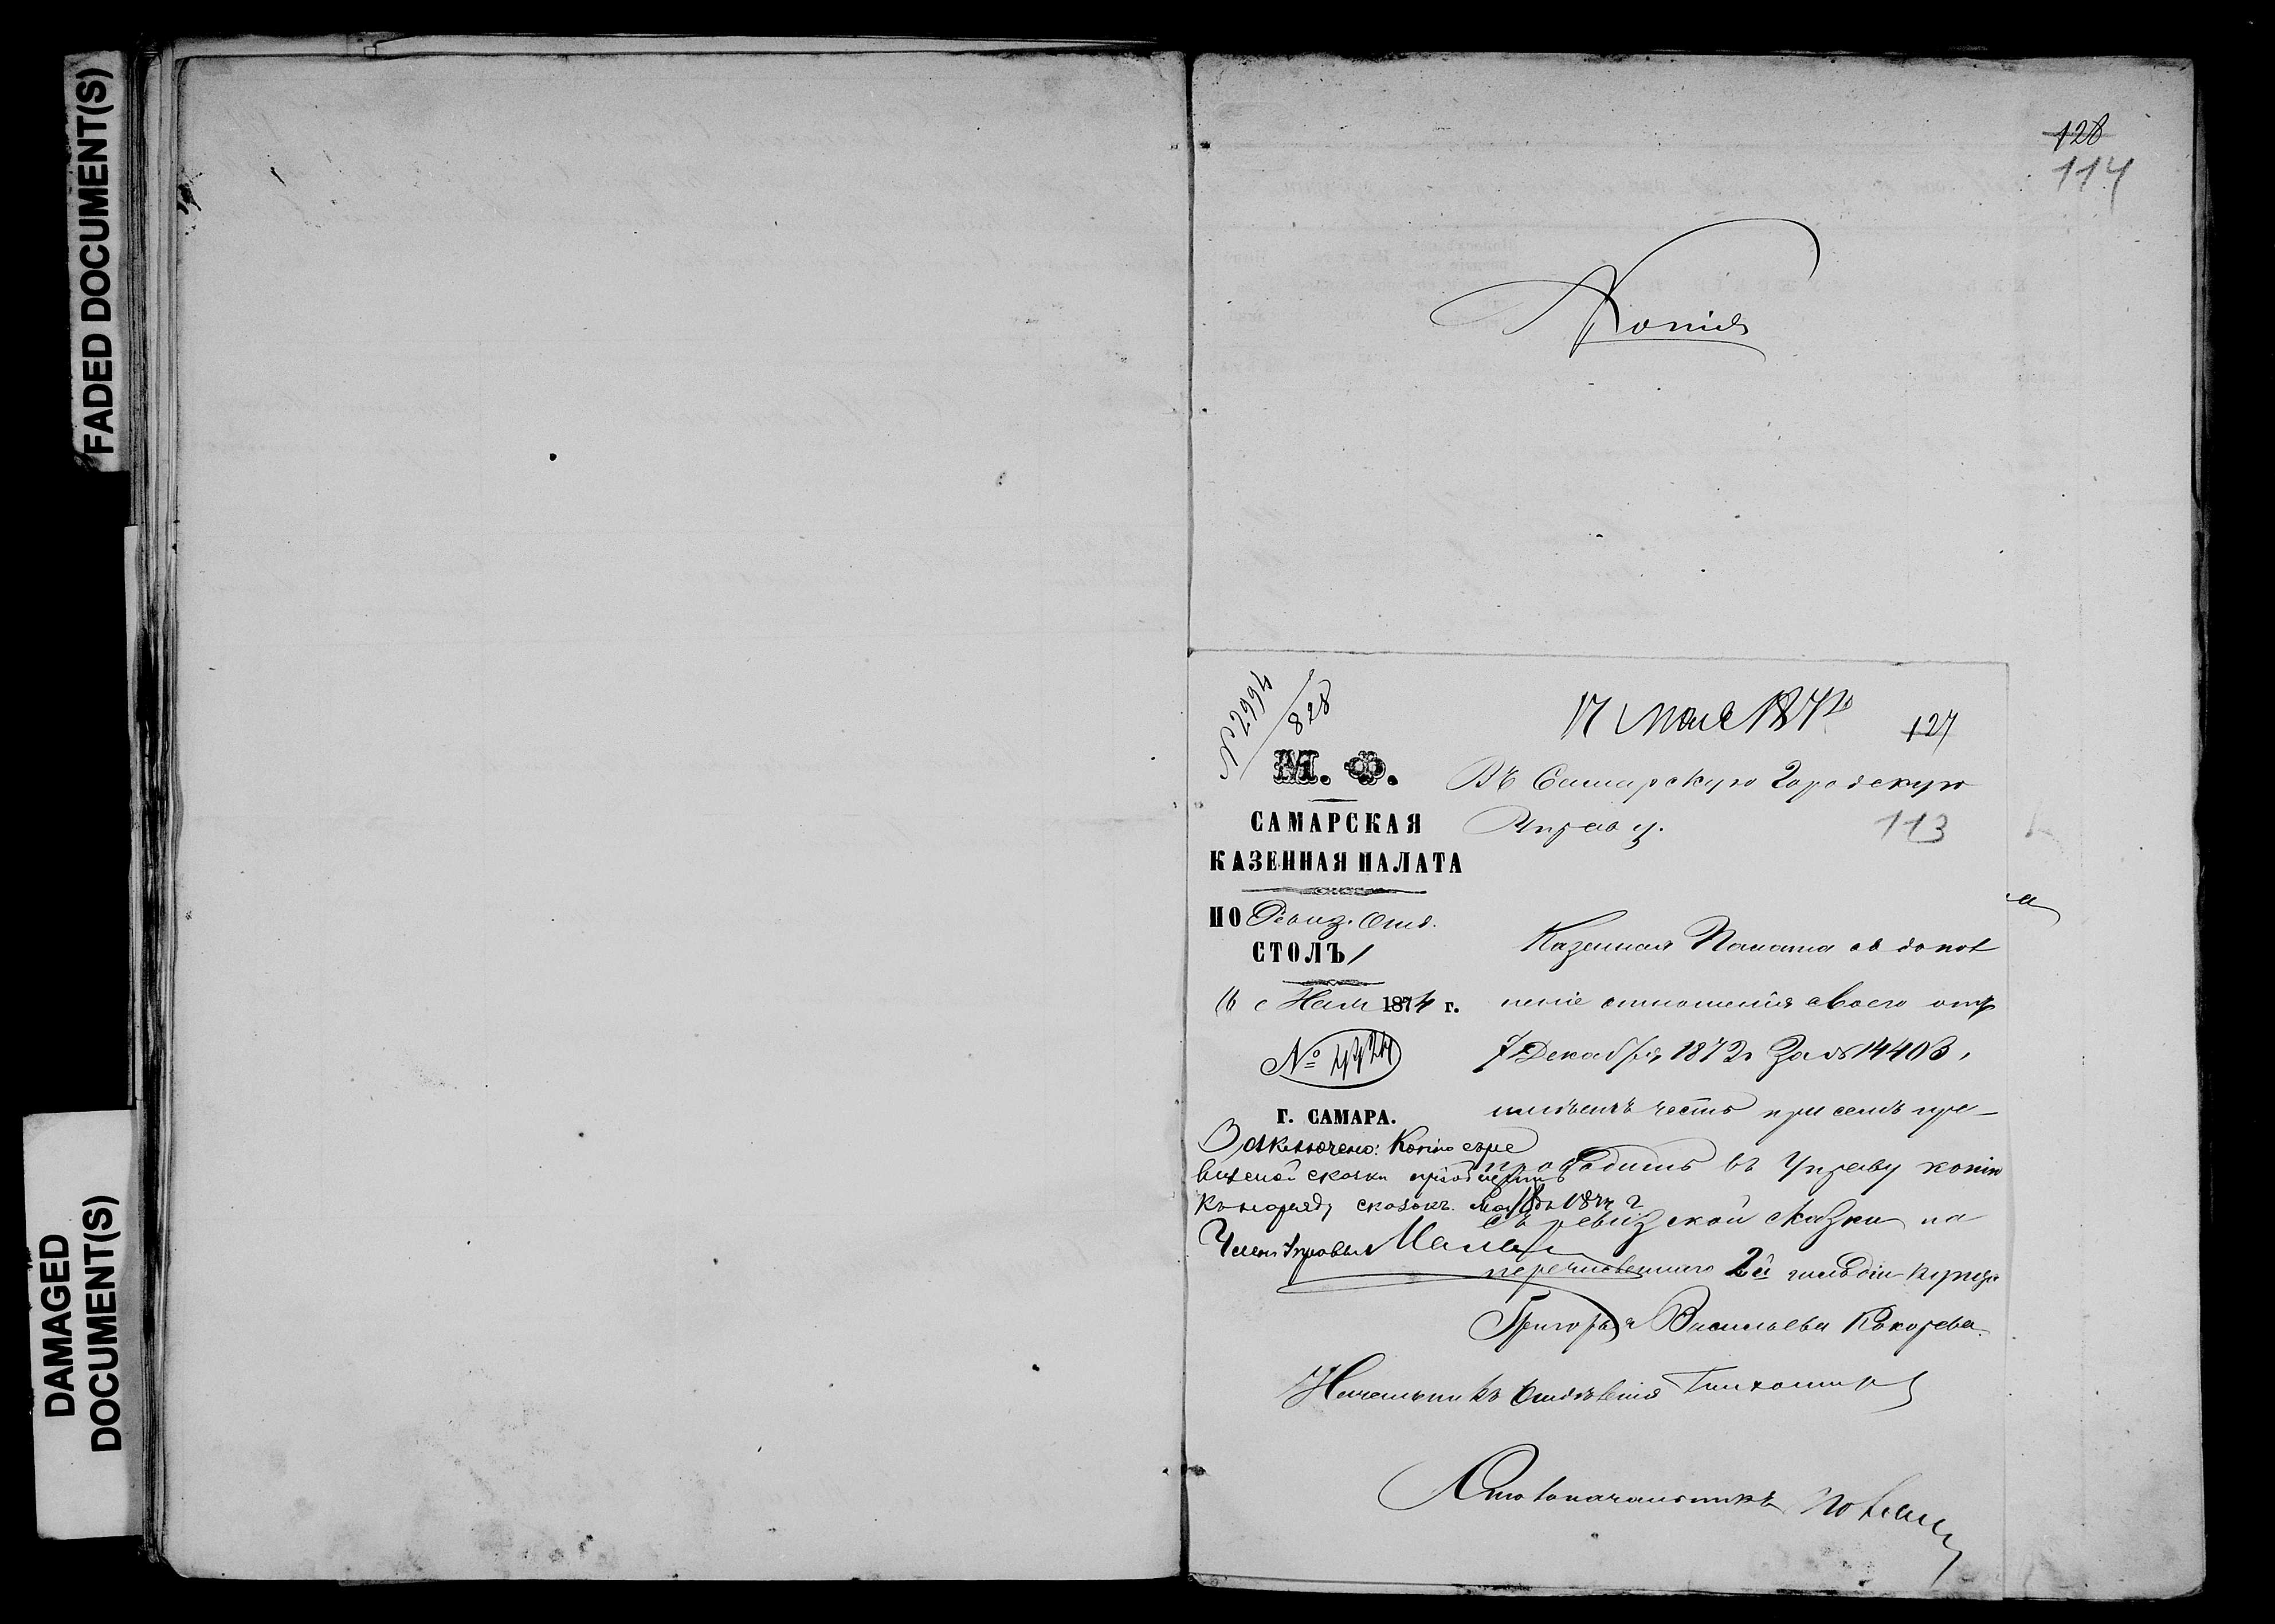 FADED DOCUMENT(S)
DAMAGED
DOCUMENT(S)
128
114
Копія
№ 2994/828
17 мая 1874
127
М. Ф.
САМАРСКАЯ
КАЗЕННАЯ ПАЛАТА
ПО Ревиз. Отд.
СТОЛЪ 1
1874 г.
№
Г. САМАРА.
Въ Самарскую Городскую
Управу.
113
Казенная Палата въ допол
неніе отношенія своего отъ
7 Декабря 1872 г За № 14403,
имѣетъ честь при семъ пре-
проводить въ Управу копію
съ ревизской сказки на
перечисленнаго 2й гильдіи купца
Григорья Васильева Кокорева.
Заключено: Копію съ ре
визской сказки пріобщить
къ наряду сказокъ. Мая 1874 г
Членъ Управы
Начальникъ Отдѣленія Тихомиров
Столоначальникъ